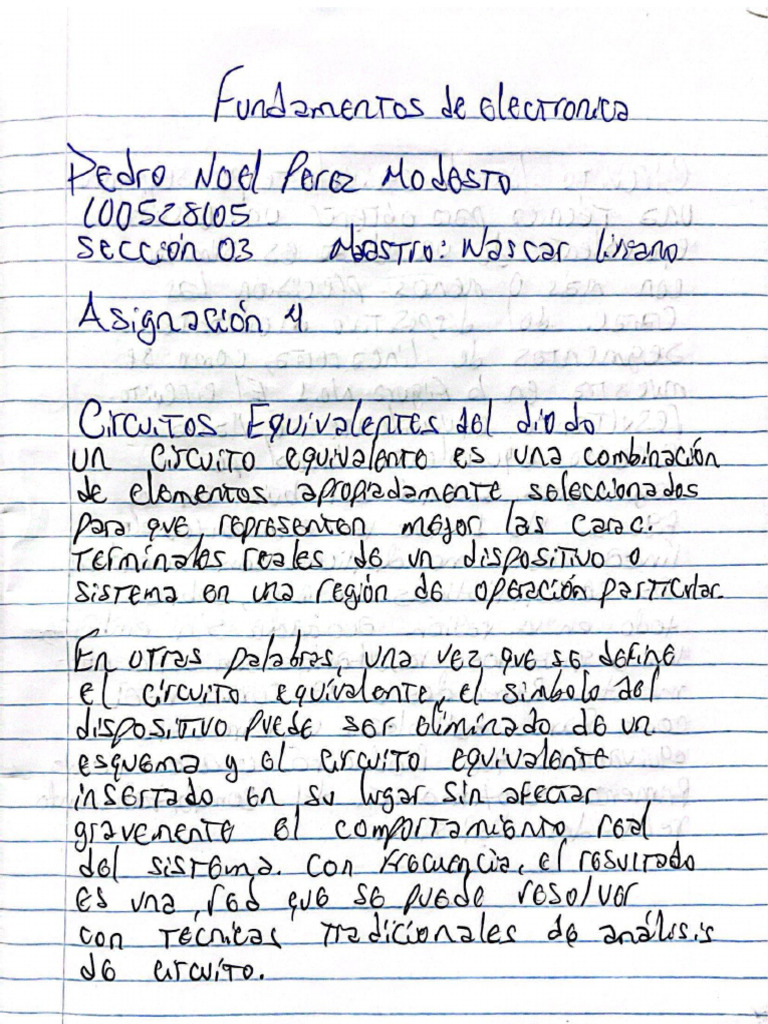 Fundamentos de electronica
Pedro Noel Perez Modesto
100528105
Sección 03 Maestro: Nascar Liriano
Asignación 4
Circuitos Equivalentes del diodo
un circuito equivalente es una combinación
de elementos apropiadamente seleccionados
para que representen mejor las carac.
terminales reales de un dispositivo o
sistema en una región de operación particular.
En otras palabras, una vez que se define
el circuito equivalente, el simbolo del
dispositivo puede ser eliminado de un
esquema y el circuito equivalente
insertado en su lugar sin afectar
gravemente el comportamiento real
del sistema. Con frecuencia, el resultado
es una red que se puede resolver
con técnicas tradicionales de análisis
de circuito.